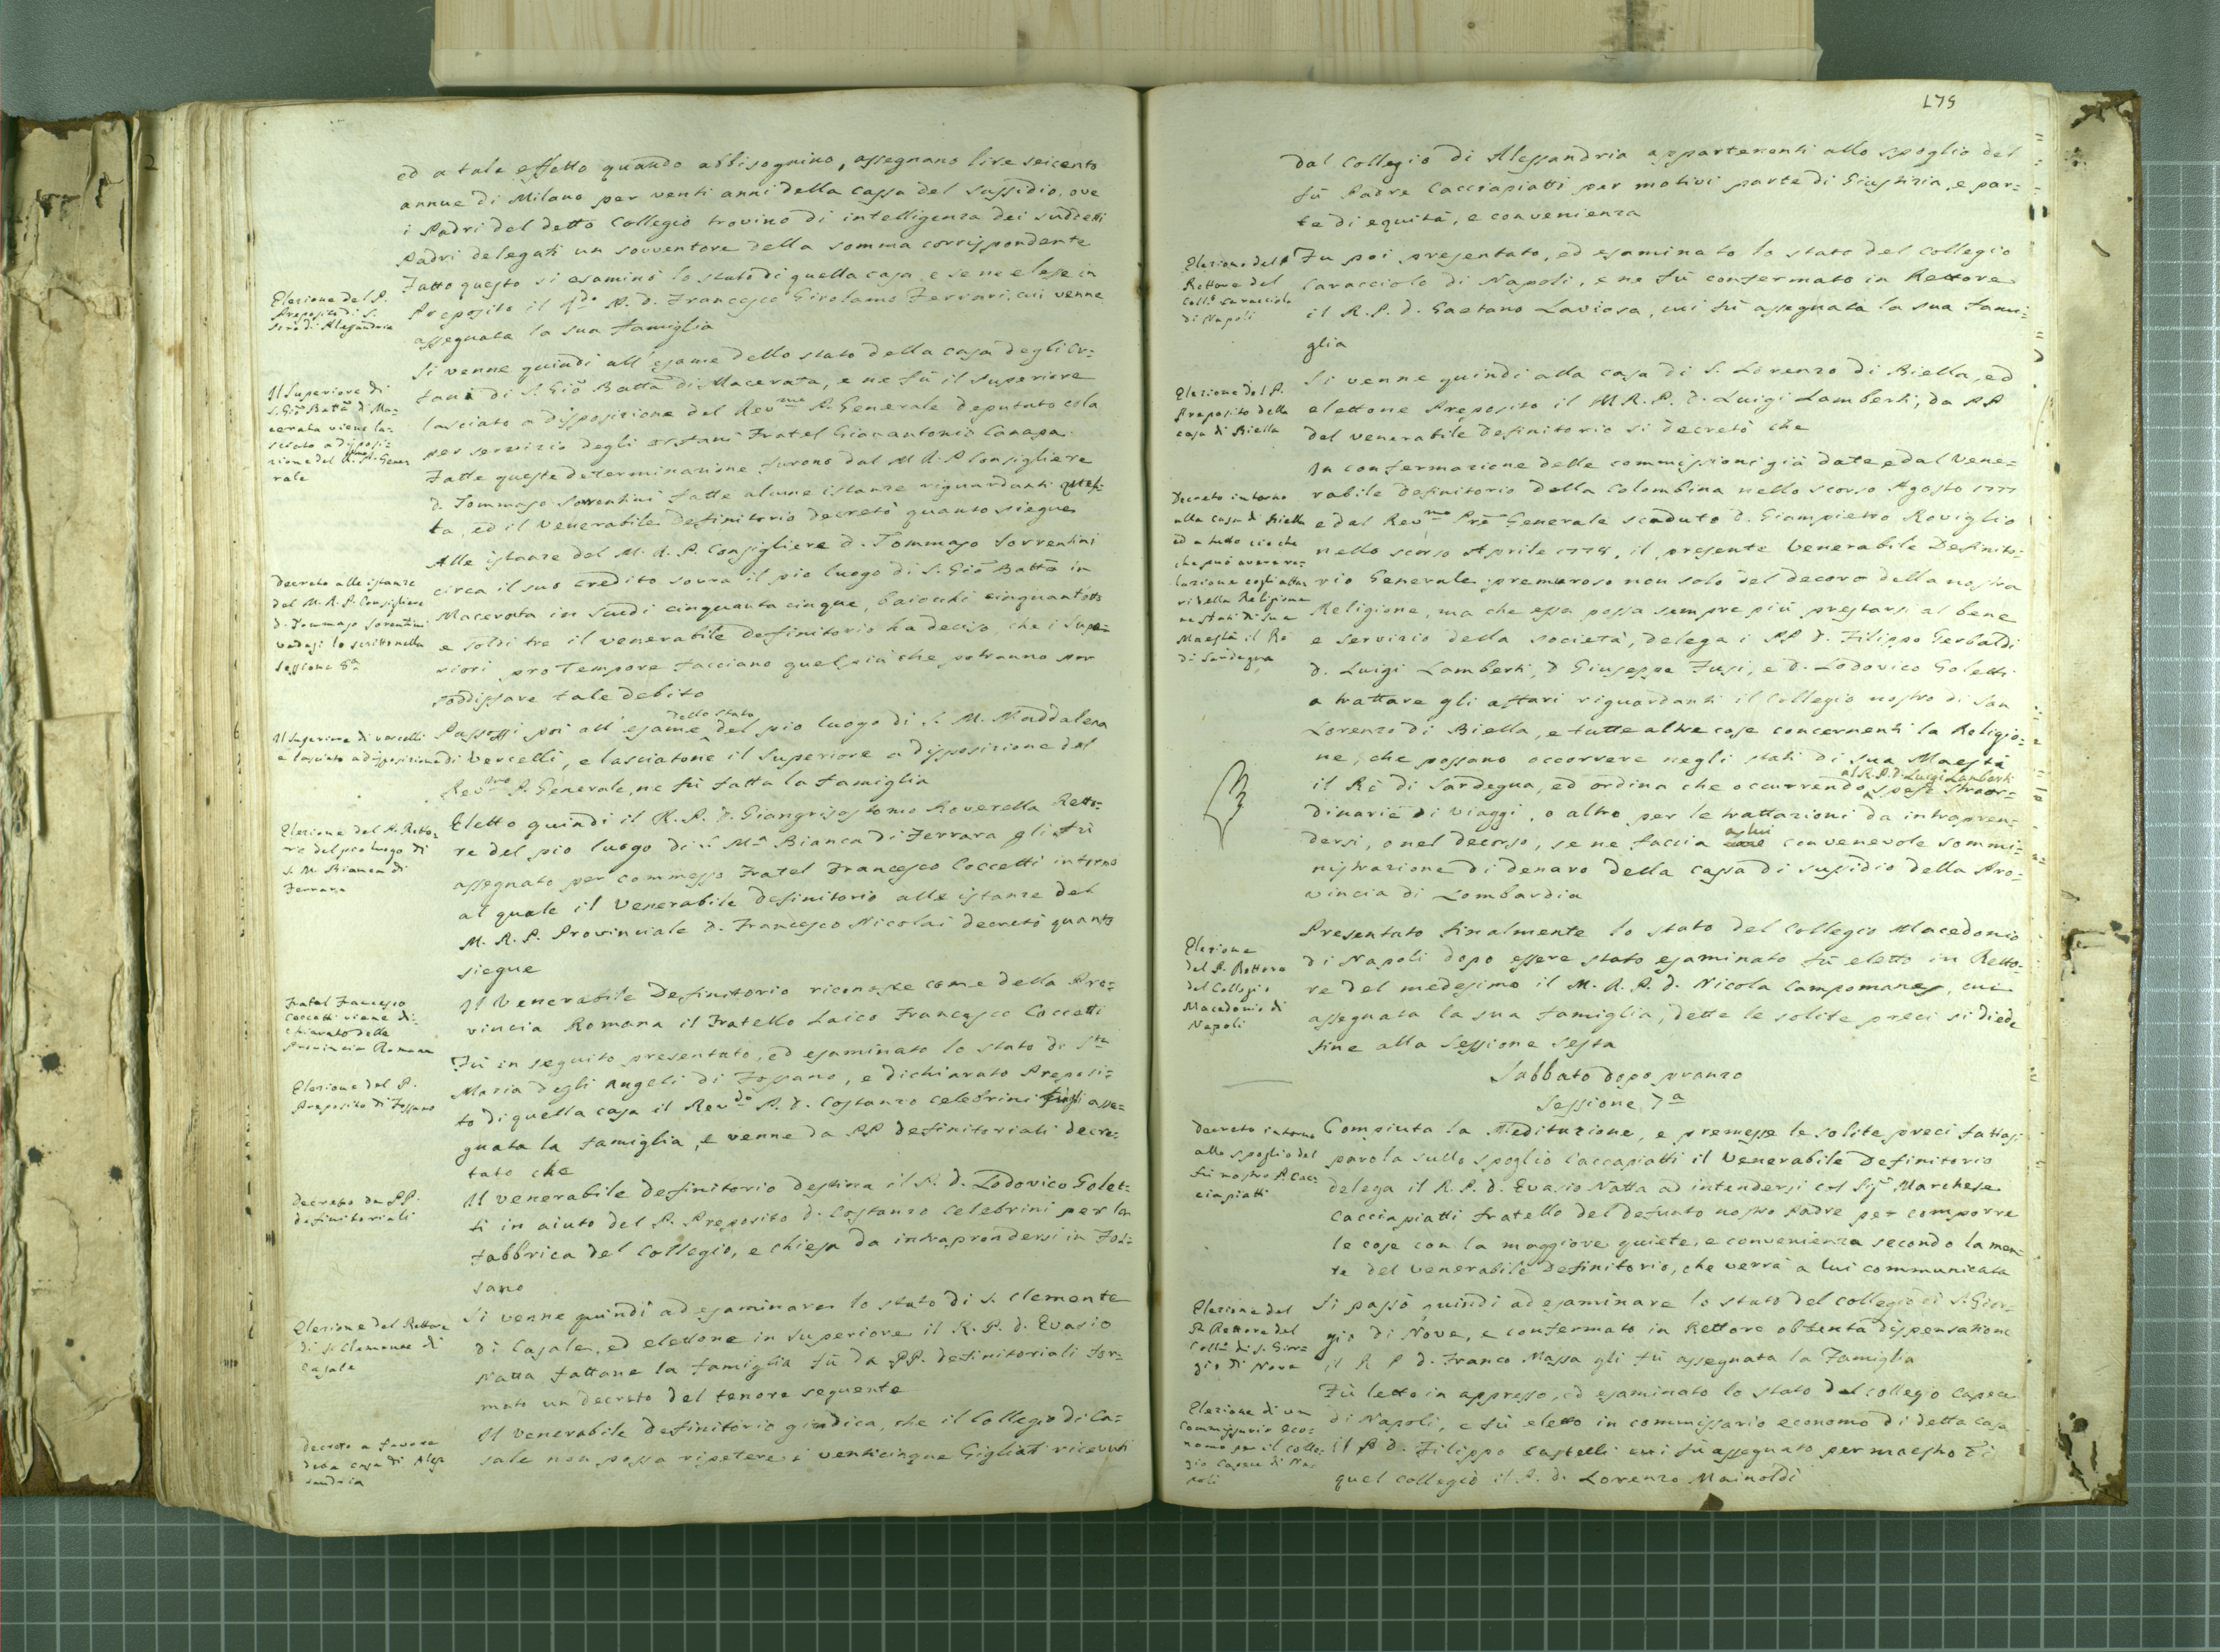 ed a tale effetto quando abbisognino, assegnano lire seicento
annue di Milano per venti anni della cassa del sussidio, ove
i Padri del detto Collegio trovino di intelligenza dei suddetti
Padri delegati un sovventore della somma corrispondente
Fatto questo si esaminò lo stato di quella casa, e se ne elesse in
Elezione del P.
Preposito di S.
Siro di Alessandria
Preposito il P. d. Francesco Girolamo Ferrari, cui venne
assegnata la sua famiglia
Si venne quindi all' esame dello stato della casa degli or=
Il Superiore di
S. Gio Batta di Ma=
cerata viene la=
sciato a disposi=
zione del Rmo P. Gene
rale
fani di S. Gio Batta di Macerata, e ne fù il Superiore
lasciato a disposizione del Revmo P. Generale deputato colà
per servizio degli orfani Fratel Gianantonio Canapa
Fatte queste determinazione furono dal M R. P Consigliere
d. Tommaso Sorrentini fatte alcune istanze riguardanti ques=
ta, ed il Venerabile Definitorio decretò quanto siegue
Decreto alle istanze
del M. R. P. Consigliere
d. Tommaso Sorrentini
vedasi lo scritto nella
Sessione 8a
Alle istanze del M. R. P. Consigliere d. Tommaso Sorrentini
circa il suo credito sovra il pio luogo di S. Gio Batta in
Macerata in scudi cinquanta cinque, baiocchi cinquantotto
e soldi tre il venerabile Definitorio ha deciso, che i Supe=
riori pro Tempore facciano quel più che potranno per
soddisfare tale debito
Il Superiore di Vercelli
è lasciato a disposizione
Passossi poi all' esame dello stato del pio luogo di S. M. Maddalena
di Vercelli, e lasciatone il Superiore a disposizione del
Revmo P. Generale, ne fù fatta la famiglia
Elezione del P. Retto=
re del pio luogo di
S. M. Bianca di
Ferrara
Eletto quindi il R. P. d. Giangrisostomo Roverella Retto=
re del pio luogo di S. Ma Bianca di Ferrara gli fù
assegnato per commesso Fratel Francesco Coccetti intorno
al quale il Venerabile Definitorio alle istanze del
M. R. P. Provinciale d. Francesco Nicolai decretò quanto
siegue
Fratel Francesco
Coccetti viene di=
chiarato della
Provincia Romana
Il Venerabile Definitorio riconosce come della Pro=
vincia Romana il Fratello Laico Francesco Coccetti
Fù in seguito presentato, ed esaminato lo stato di Sta
Elezione del P.
Preposito di Fossano
Maria degli Angeli di Fossano, e dichiarato Preposi=
to di quella casa il Revdo P. d. Costanzo Celebrini asse=
gnata la famiglia, e venne da PP definitoriali decre=
tato che
Decreto da PP.
definitoriali
Il venerabile Definitorio destina il P. d. Lodovico Golet=
ti in aiuto del P. Preposito d. Costanzo Celebrini per la
fabbrica del Collegio, e chiesa da intraprendersi in Fos=
sano
Elezione del Rettore
di S. Clemente di
Casale
Si venne quindi ad esaminare lo stato di S. Clemente
di Casale, ed elettone in superiore il R. P. d. Evasio
Natta, fattane la famiglia fù da PP. definitoriali for=
mato un decreto del tenore seguente
Decreto a favore
della casa di Ales
sandria
Il venerabile Definitorio giudica, che il Collegio di Ca=
sale non possa ripetere i venticinque Gigliati ricevuti
179
dal Collegio di Alessandria appartenenti allo spoglio del
fù Padre Cacciapiatti per motivi parte di Giustizia, e par=
te di equità, e convenienza
Elezione del P
Rettore del
Colle. Caracciolo
di Napoli
Fu poi presentato, ed esaminato lo stato del Collegio
Caracciolo di Napoli, e ne fù confermato in Rettore
il R. P. d. Gaetano Laviosa, cui fù assegnata la sua fami=
glia
Elezione del P.
Preposito della
casa di Biella
Si venne quindi alla casa di S. Lorenzo di Biella, ed
elettone Preposito il M R. P. d. Luigi Lamberti, da PP
del venerabile Definitorio si decretò che
Decreto intorno
alla casa di Biella
ed a tutto ciò che
che può avere re=
lazione cogli affa
ri della Religione
ne stati di sua
Maestà il Rè
di Sardegna
In confermazione delle commissioni già date e dal Vene=
rabile Definitorio della Colombina nello scorso Agosto 1777
e dal Revmo Pre Generale scaduto d. Giampietro Roviglio
nello scorso Aprile 1778, il presente Venerabile Definito=
rio Generale, premuroso non solo del decoro della nostra
Religione, ma che essa possa sempre più prestarsi al bene
e servizio della società, delega i PP d. Filippo Gerbaldi
d. Luigi Lamberti, d Giuseppe Fusi, e d. Lodovico Goletti
a trattare gli affari riguardanti il Collegio nostro di San
Lorenzo di Biella, e tutte altre cose concernenti la Religio=
ne, che possano occorrere negli stati di sua Maestà
il Rè di Sardegna, ed ordina che occorrendo al R. P. d. Luigi Lamberti spese straor=
dinarie di viaggi, o altro per le trattazioni da intrapren=
dersi, o nel decorso, se ne faccia a lui convenevole sommi=
nistrazione di denaro della cassa di sussidio della Pro=
vincia di Lombardia
Elezione
del P. Rettore
del Collegio
Macedonio di
Napoli
Presentato finalmente lo stato del Collegio Macedonio
di Napoli dopo essere stato esaminato fù eletto in Retto=
re del medesimo il M. R. P. d. Nicola Campomanes, cui
assegnata la sua famiglia, dette le solite preci si diede
fine alla Sessione sesta
Sabbato dopo pranzo
Sessione 7a
Decreto intorno
allo spoglio del
fù nostro P. Cac=
ciapiatti
Compiuta la Meditazione, e premesse le solite preci fattasi
parola sullo spoglio Caccapiatti il Venerabile Definitorio
delega il R. P. d. Evasio Natta ad intendersi col Sigr Marchese
Cacciapiatti fratello del defunto nostro Padre per comporre
le cose con la maggiore quiete, e convenienza secondo la men=
te del venerabile Definitorio, che verrà a lui communicata
Elezione del
P. Rettore del
Colle di S. Gior=
gio di Nove
Si passò quindi ad esaminare lo stato del collegio di S. Gior=
gio di Nove, e confermato in Rettore ottenta dispensatione
il R P d. Franco Massa gli fù assegnata la Famiglia
Elezione di un
Commissario eco=
nomo per il colle=
gio Capece di Na=
poli
Fù letto in appresso, ed esaminato lo stato del collegio Capece
di Napoli, e fù eletto in commissario economo di detta casa
il P d. Filippo Castelli cui fù assegnato per maestro di
quel collegio il P. d. Lorenzo Mainoldi